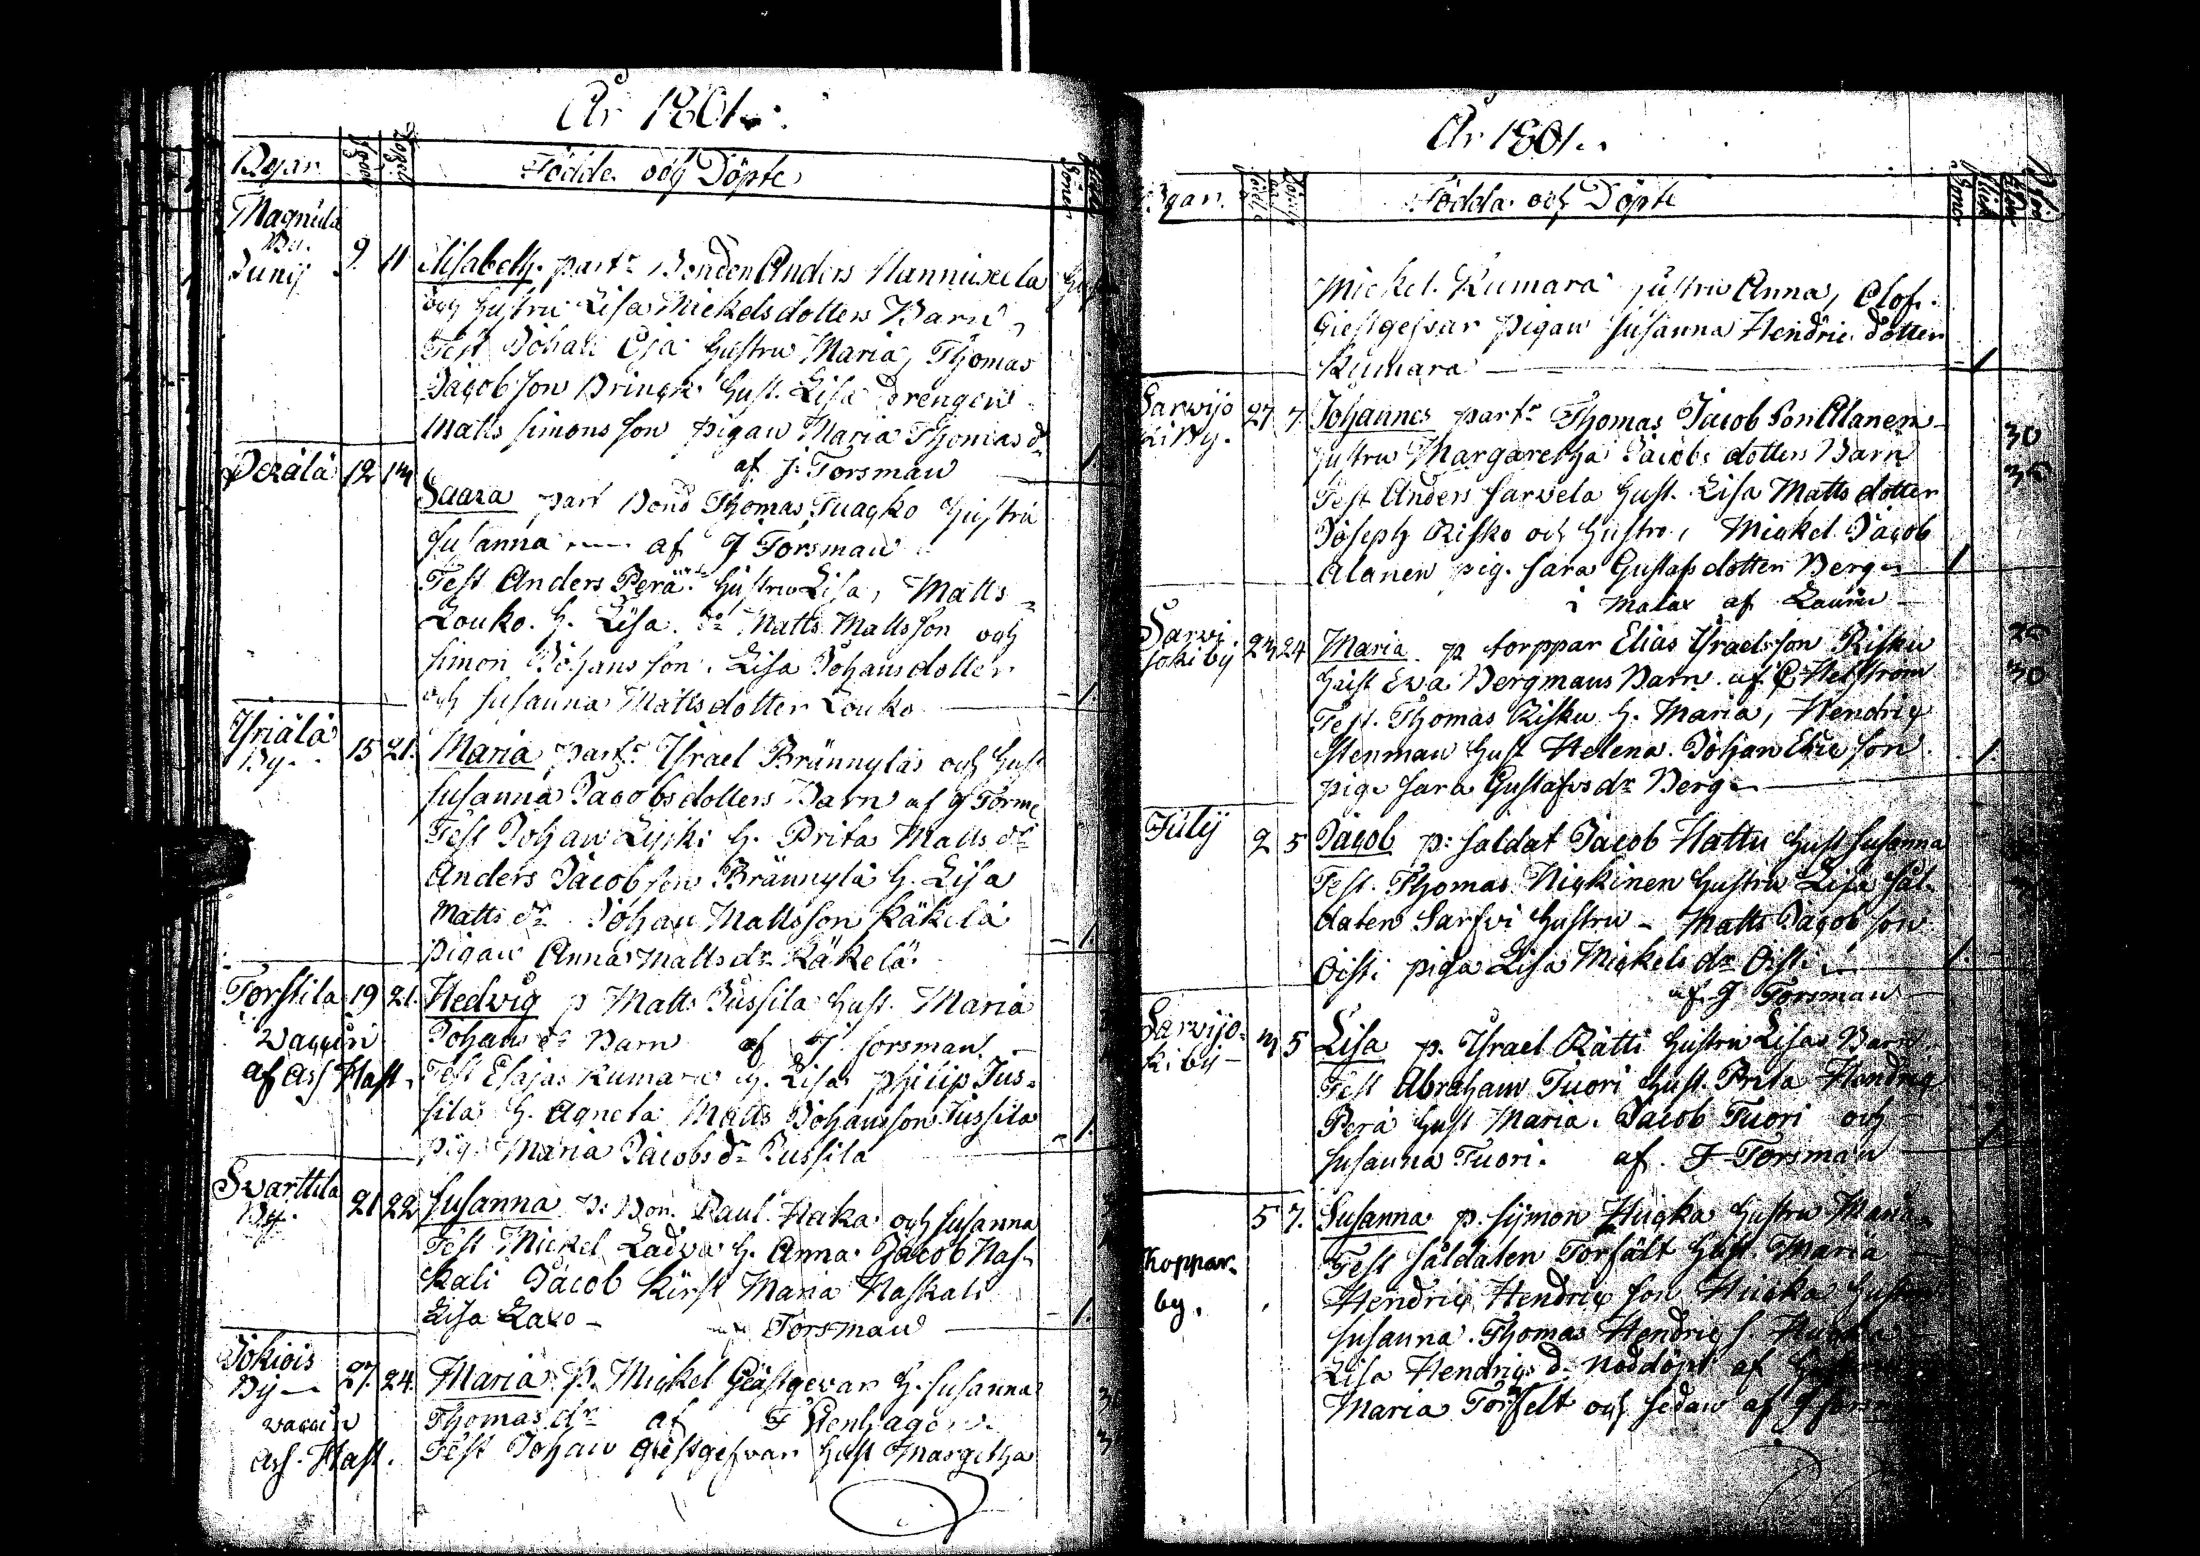 År 1801.
Byar
Födde och Döpte
Magnula
By.
Junij 9. 11 Elisabeth. part:r Bonden Anders Hannuxela
och hustru Lisa Mickelsdotters Barn,
Test Johan hustru Maria, Thomas
Jacobson Princk Hust. Lisa Drengen
Matts Simonsson pigan Maria Thomas d:r
af J. Forsman 1.
Perälä 12 14 Saara part Bond Thomas Tuacko hustru
Susanna af J Forsman
Test Anders Perä hustru Lisa, Matts
Louko. H. Lisa. Matts Mattsson och
Simon Johansson. Lisa Johansdotter
och Susanna Mattsdotter Louko 1.
Yriälä
By. 15 21. Maria part:r Ysrael Brännylä och Hust
Susanna Jacobsdotters Barn af J Forsm
Test Johan H. Brita Matts d:r
Anders Jacobson Brännylä H. Lisa
Matts d:r Johan Mattsson Käkelä 1.
pigan Anna Matts d:r Käkelä.
Torstila 19 21. Hedvig p Matts Jussila Hust. Maria
Johan d:r Barn af J Forsman
vaccin
af Ass Hast. Test Esajas Kumara H. Lisa Philip Jus-
sila H. Agneta Matts Johansson Jussila 1.
pig. Maria Jacobs d:r Jussila
Svarttila
By. 21 22 Susanna p: Bon. Paul Haka och Susanna
Test Mickel Ladva H. Anna Jacob Has-
kali Jacob Kirst Maria Haskali
Lisa Laxo Forsman 1.
Jokiois
By 27 24 Maria p. Mickel Giästgevar H. Susanna
Thomas d:r af F Stenhagen
vaccin
Ass. Hast. Test Johan Giestgefvar Hust Margetha
År 1801.
Byar.
Födda och Döpte
Mickel Kumara hustru Anna, Olof
Giestgefvar pigan Susanna Hendric dotter
Kumara 1
Sarvijo
ki By. 27 7. Johannes part:r Thomas Jacobson Alanen
hustru Margaretha Jacobs dotters Barn
30
Test Anders Sarvela Hust. Lisa Matts dotter
Joseph Risko och Hustro, Mickel Jacob
Alanen pig. Sara Gustafs dotter Berg 1
i Malax af
Sarvi
jokiby 23 24 Maria p torppar Elias Ysraelsson Risku
Hust Eva Bergmans Barn af Helstrom
30
Test. Thomas Risku H. Maria, Hendric
Stenman Hust Helena. Johan Ericson 1.
pig. Sara Gustafs d:r Berg
Julij 2 5 Jacob p: Saldat Jacob Hattu Hust Susanna
Test. Thomas Nickinen hustru Lisa Sål-
daten Sarfvi Hustru Matts Jacobson
Oisti piga Lisa Mickels d:r Oisti 1.
af J Forsman
Sarvijo-
ki by 3 5 Lisa p. Ysrael Rätti hustru Lisa Barn
Test Abraham Tuori Hust. Brita Hendric
Perä Hust Maria. Jacob Tuori och
Susanna Tuori. af J Forsman
5 7. Susanna p. Symon Huqka hustru Maria
Koppar-
by.
Test Såldaten Torfält Hust Maria
Hendric Hendricson Huqka
Susanna. Thomas Hendric s.
Lisa Hendrics d: nöddöpt af
Maria Torffelt och sedan af J